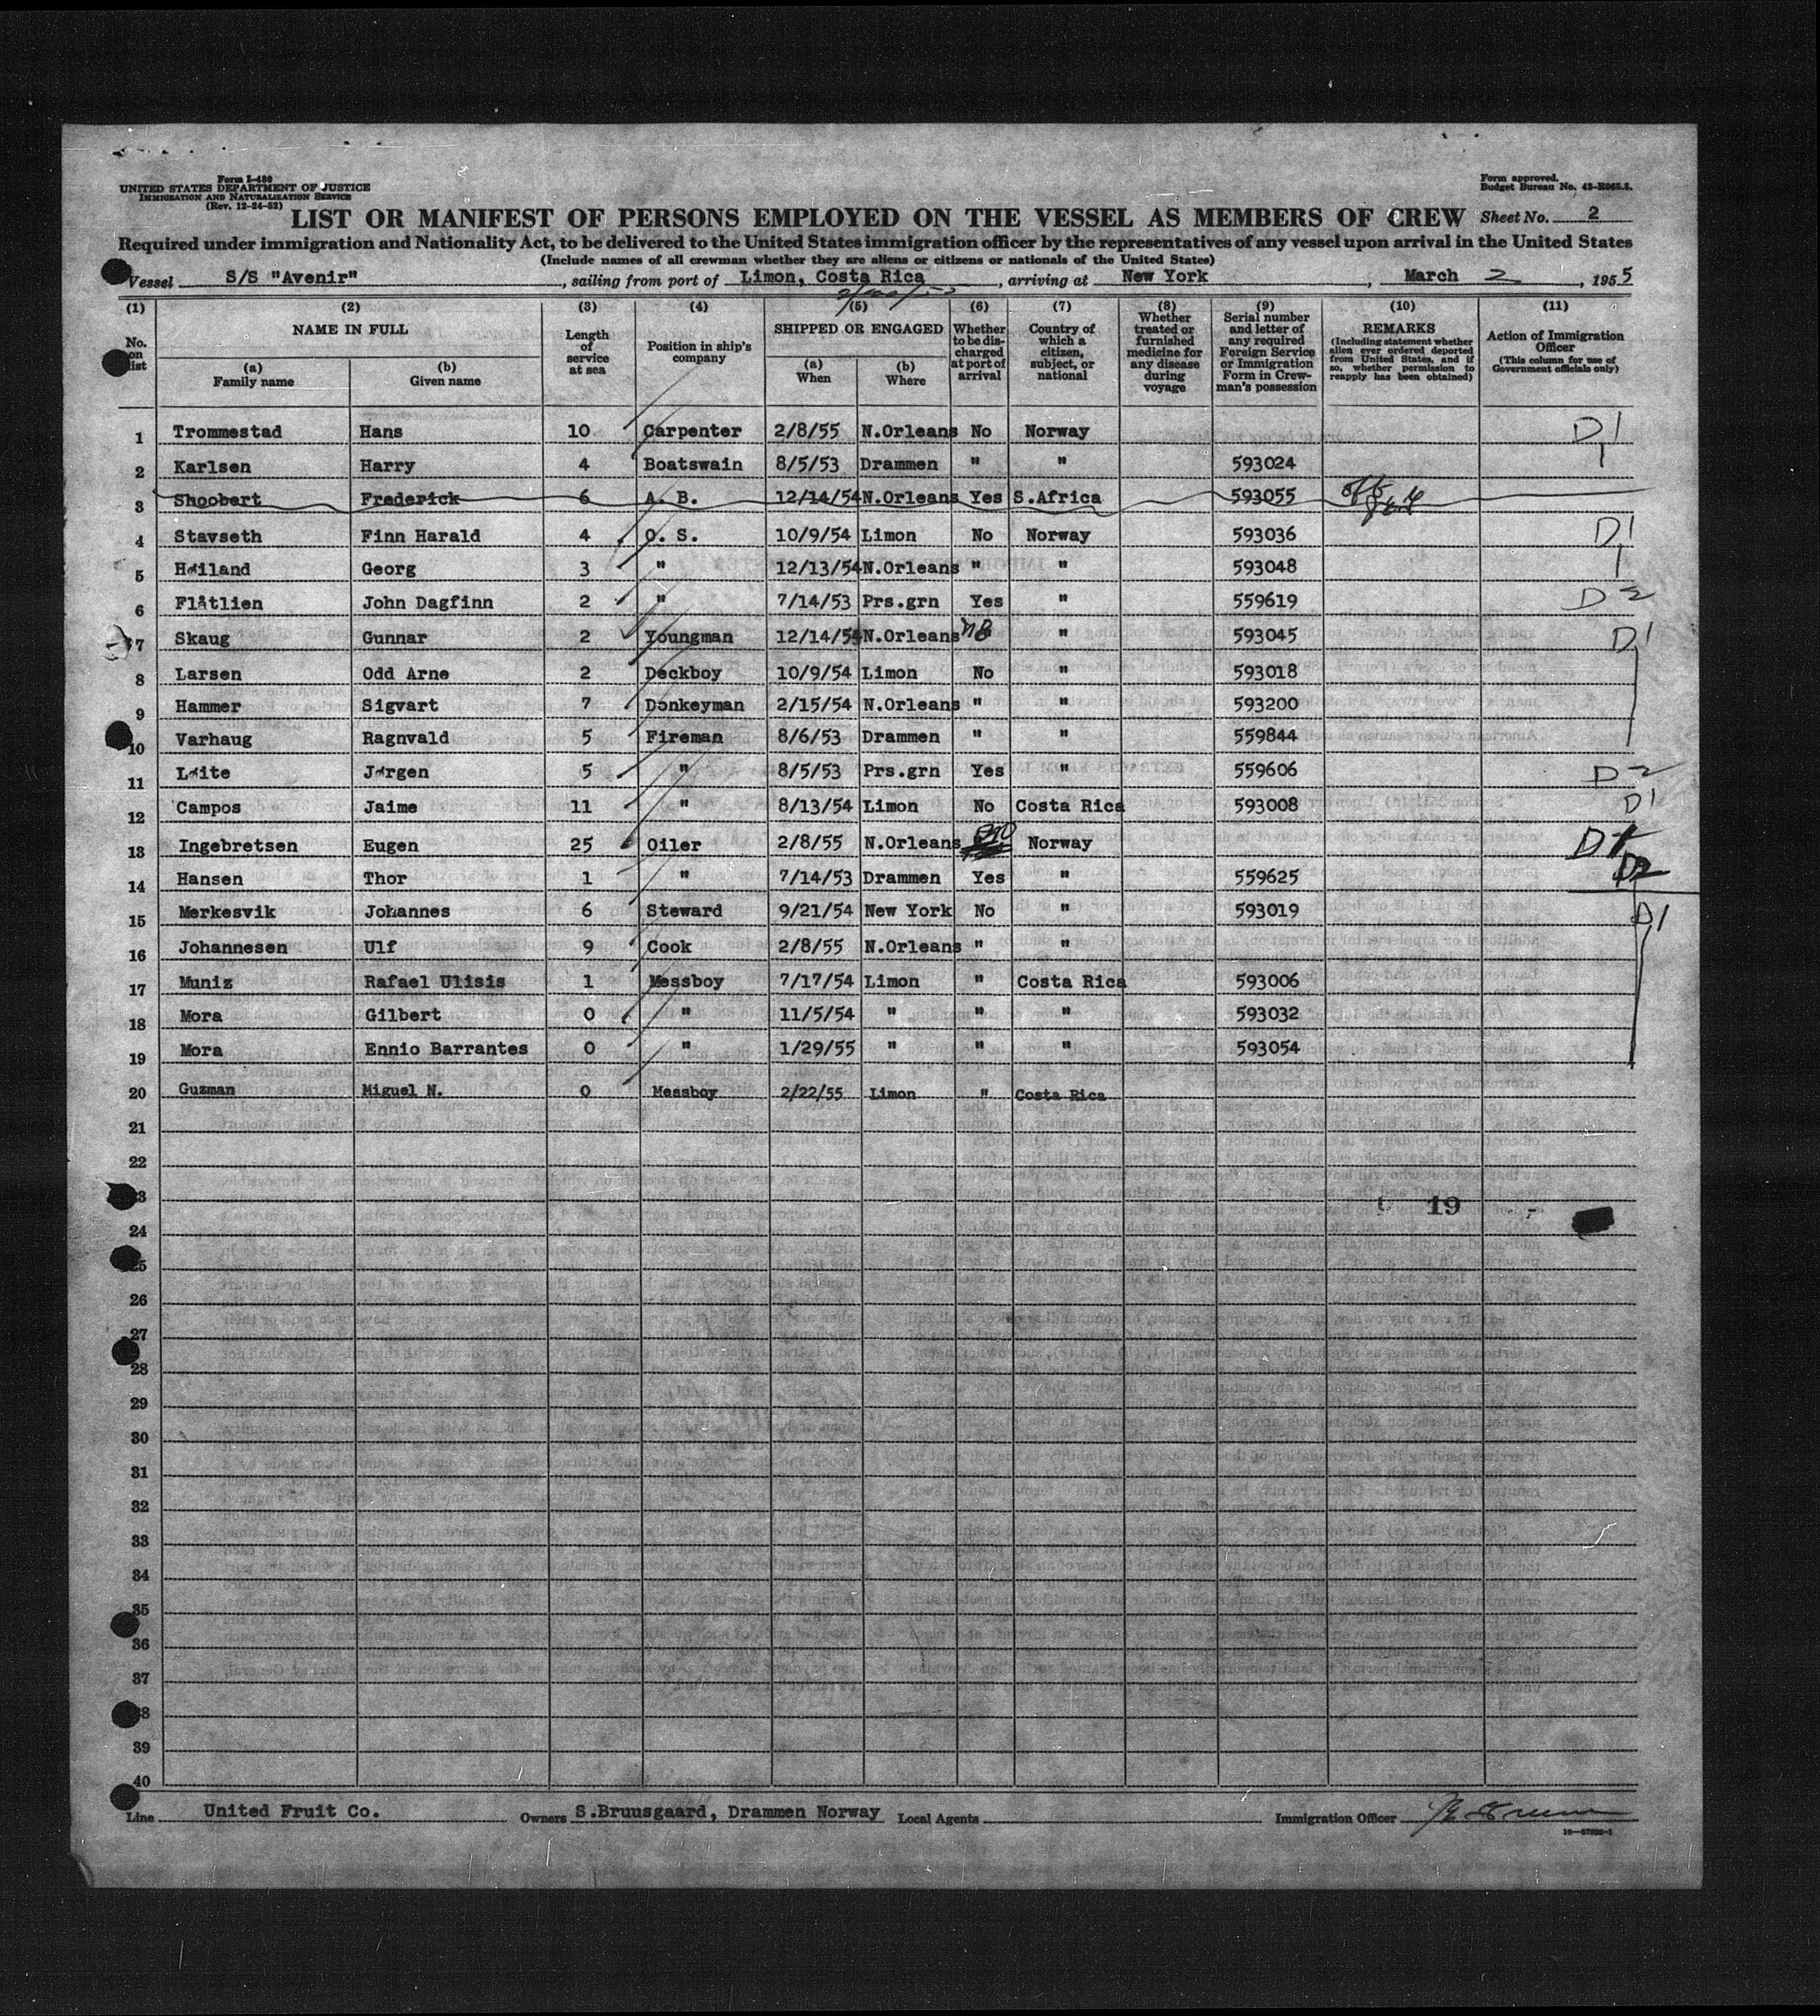 Form I-480
UNITED STATES DEPARTMENT OF JUSTICE
IMMIGRATION AND NATURALIZATION SERVICE
(Rev. 12-24-52)
Form approved.
Budget Bureau No. 43-R065.2.
LIST OR MANIFEST OF PERSONS EMPLOYED ON THE VESSEL AS MEMBERS OF CREW Sheet No. 2
Required under immigration and Nationality Act, to be delivered to the United States immigration officer by the representatives of any vessel upon arrival in the United States
(Include names of all crewman whether they are aliens or citizens or nationals of the United States)
Vessel S/S "Avenir", sailing from port of Limon, Costa Rica, arriving at New York, March 2, 1955
(1) (2) (3) (4) (5) (6) (7) (8) (9) (10) (11)
No. on list
NAME IN FULL
(a) Family name
(b) Given name
Length of service at sea
Position in ship's company
SHIPPED OR ENGAGED
(a) When
(b) Where
Whether to be discharged at port of arrival
Country of which a citizen, subject, or national
Whether treated or furnished medicine for any disease during voyage
Serial number and letter of any required Foreign Service or Immigration Form in Crewman's possession
REMARKS
(Including statement whether alien ever ordered deported from United States, and if so, whether permission to reapply has been obtained)
Action of Immigration Officer
(This column for use of Government officials only)
1 Trommestad Hans 10 Carpenter 2/8/55 N.Orleans No Norway D1
2 Karlsen Harry 4 Boatswain 8/5/53 Drammen " " 593024
3 Shoobert Frederick 6 A. B. 12/14/54 N.Orleans Yes S.Africa 593055
4 Stavseth Finn Harald 4 O. S. 10/9/54 Limon No Norway 593036 D1
5 Høiland Georg 3 " 12/13/54 N.Orleans " " 593048
6 Flåtlien John Dagfinn 2 " 7/14/53 Prs.grn Yes " 559619 D2
7 Skaug Gunnar 2 Youngman 12/14/54 N.Orleans " 593045 D1
8 Larsen Odd Arne 2 Deckboy 10/9/54 Limon No " 593018
9 Hammer Sigvart 7 Donkeyman 2/15/54 N.Orleans " " 593200
10 Varhaug Ragnvald 5 Fireman 8/6/53 Drammen " " 559844
11 Løite Jørgen 5 " 8/5/53 Prs.grn Yes " 559606 D2
12 Campos Jaime 11 " 8/13/54 Limon No Costa Rica 593008 D1
13 Ingebretsen Eugen 25 Oiler 2/8/55 N.Orleans Norway
14 Hansen Thor 1 " 7/14/53 Drammen Yes " 559625 D2
15 Merkesvik Johannes 6 Steward 9/21/54 New York No " 593019 D1
16 Johannesen Ulf 9 Cook 2/8/55 N.Orleans " "
17 Muniz Rafael Ulisis 1 Messboy 7/17/54 Limon " Costa Rica 593006
18 Mora Gilbert 0 " 11/5/54 " " " 593032
19 Mora Ennio Barrantes 0 " 1/29/55 " " " 593054
20 Guzman Miguel N. 0 Messboy 2/22/55 Limon " Costa Rica
21
22
23
19
24
25
26
27
28
29
30
31
32
33
34
35
36
37
38
39
40
Line United Fruit Co. Owners S.Bruusgaard, Drammen Norway Local Agents Immigration Officer